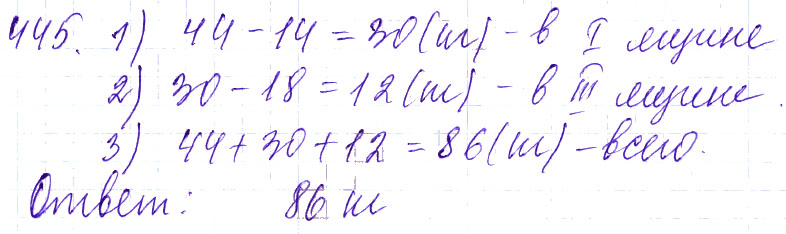 445. 1) 44 - 14 = 30 (м) - в I ящике
2) 30 - 18 = 12 (м) - в III ящике.
3) 44 + 30 + 12 = 86 (м) - всего.
Ответ: 86 м